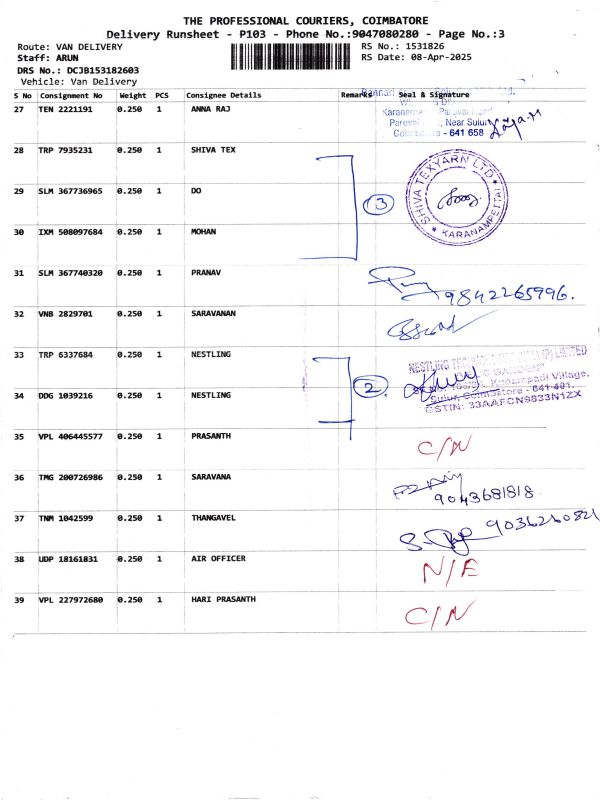 THE PROFESSIONAL COURIERS, COIMBATORE
Delivery Runsheet - P103 - Phone No.:9047080280 - Page No.:3
Route: VAN DELIVERY RS No.: 1531826
Staff: ARUN RS Date: 08-Apr-2025
DRS No.: DCJB153182603
Vehicle: Van Delivery
S No Consignment No Weight PCS Consignee Details Remarks Seal & Signature
27 TEN 2221191 0.250 1 ANNA RAJ
Near Sulur
- 641 658
28 TRP 7935231 0.250 1 SHIVA TEX
SHIVA TEXYARN LTD
KARANAMPETTAI
29 SLM 367736965 0.250 1 DO
3
30 IXM 508097684 0.250 1 MOHAN
31 SLM 367740320 0.250 1 PRANAV
9842265996.
32 VNB 2829701 0.250 1 SARAVANAN
33 TRP 6337684 0.250 1 NESTLING
NESTLING LIMITED
Village,
34 DDG 1039216 0.250 1 NESTLING
2
Sulur, Coimbatore - 641 401.
GSTIN: 33AAFCN9833N1ZX
35 VPL 406445577 0.250 1 PRASANTH
C/N
36 TMG 200726986 0.250 1 SARAVANA
9043681818
37 TNM 1042599 0.250 1 THANGAVEL
9036260821
38 UDP 18161831 0.250 1 AIR OFFICER
N/E
39 VPL 227972680 0.250 1 HARI PRASANTH
C/N